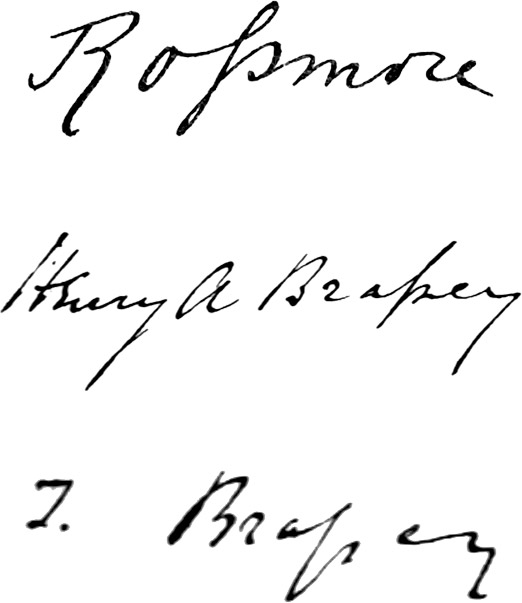 Roſsmore
Henry A Braſsey
T. Braſsey